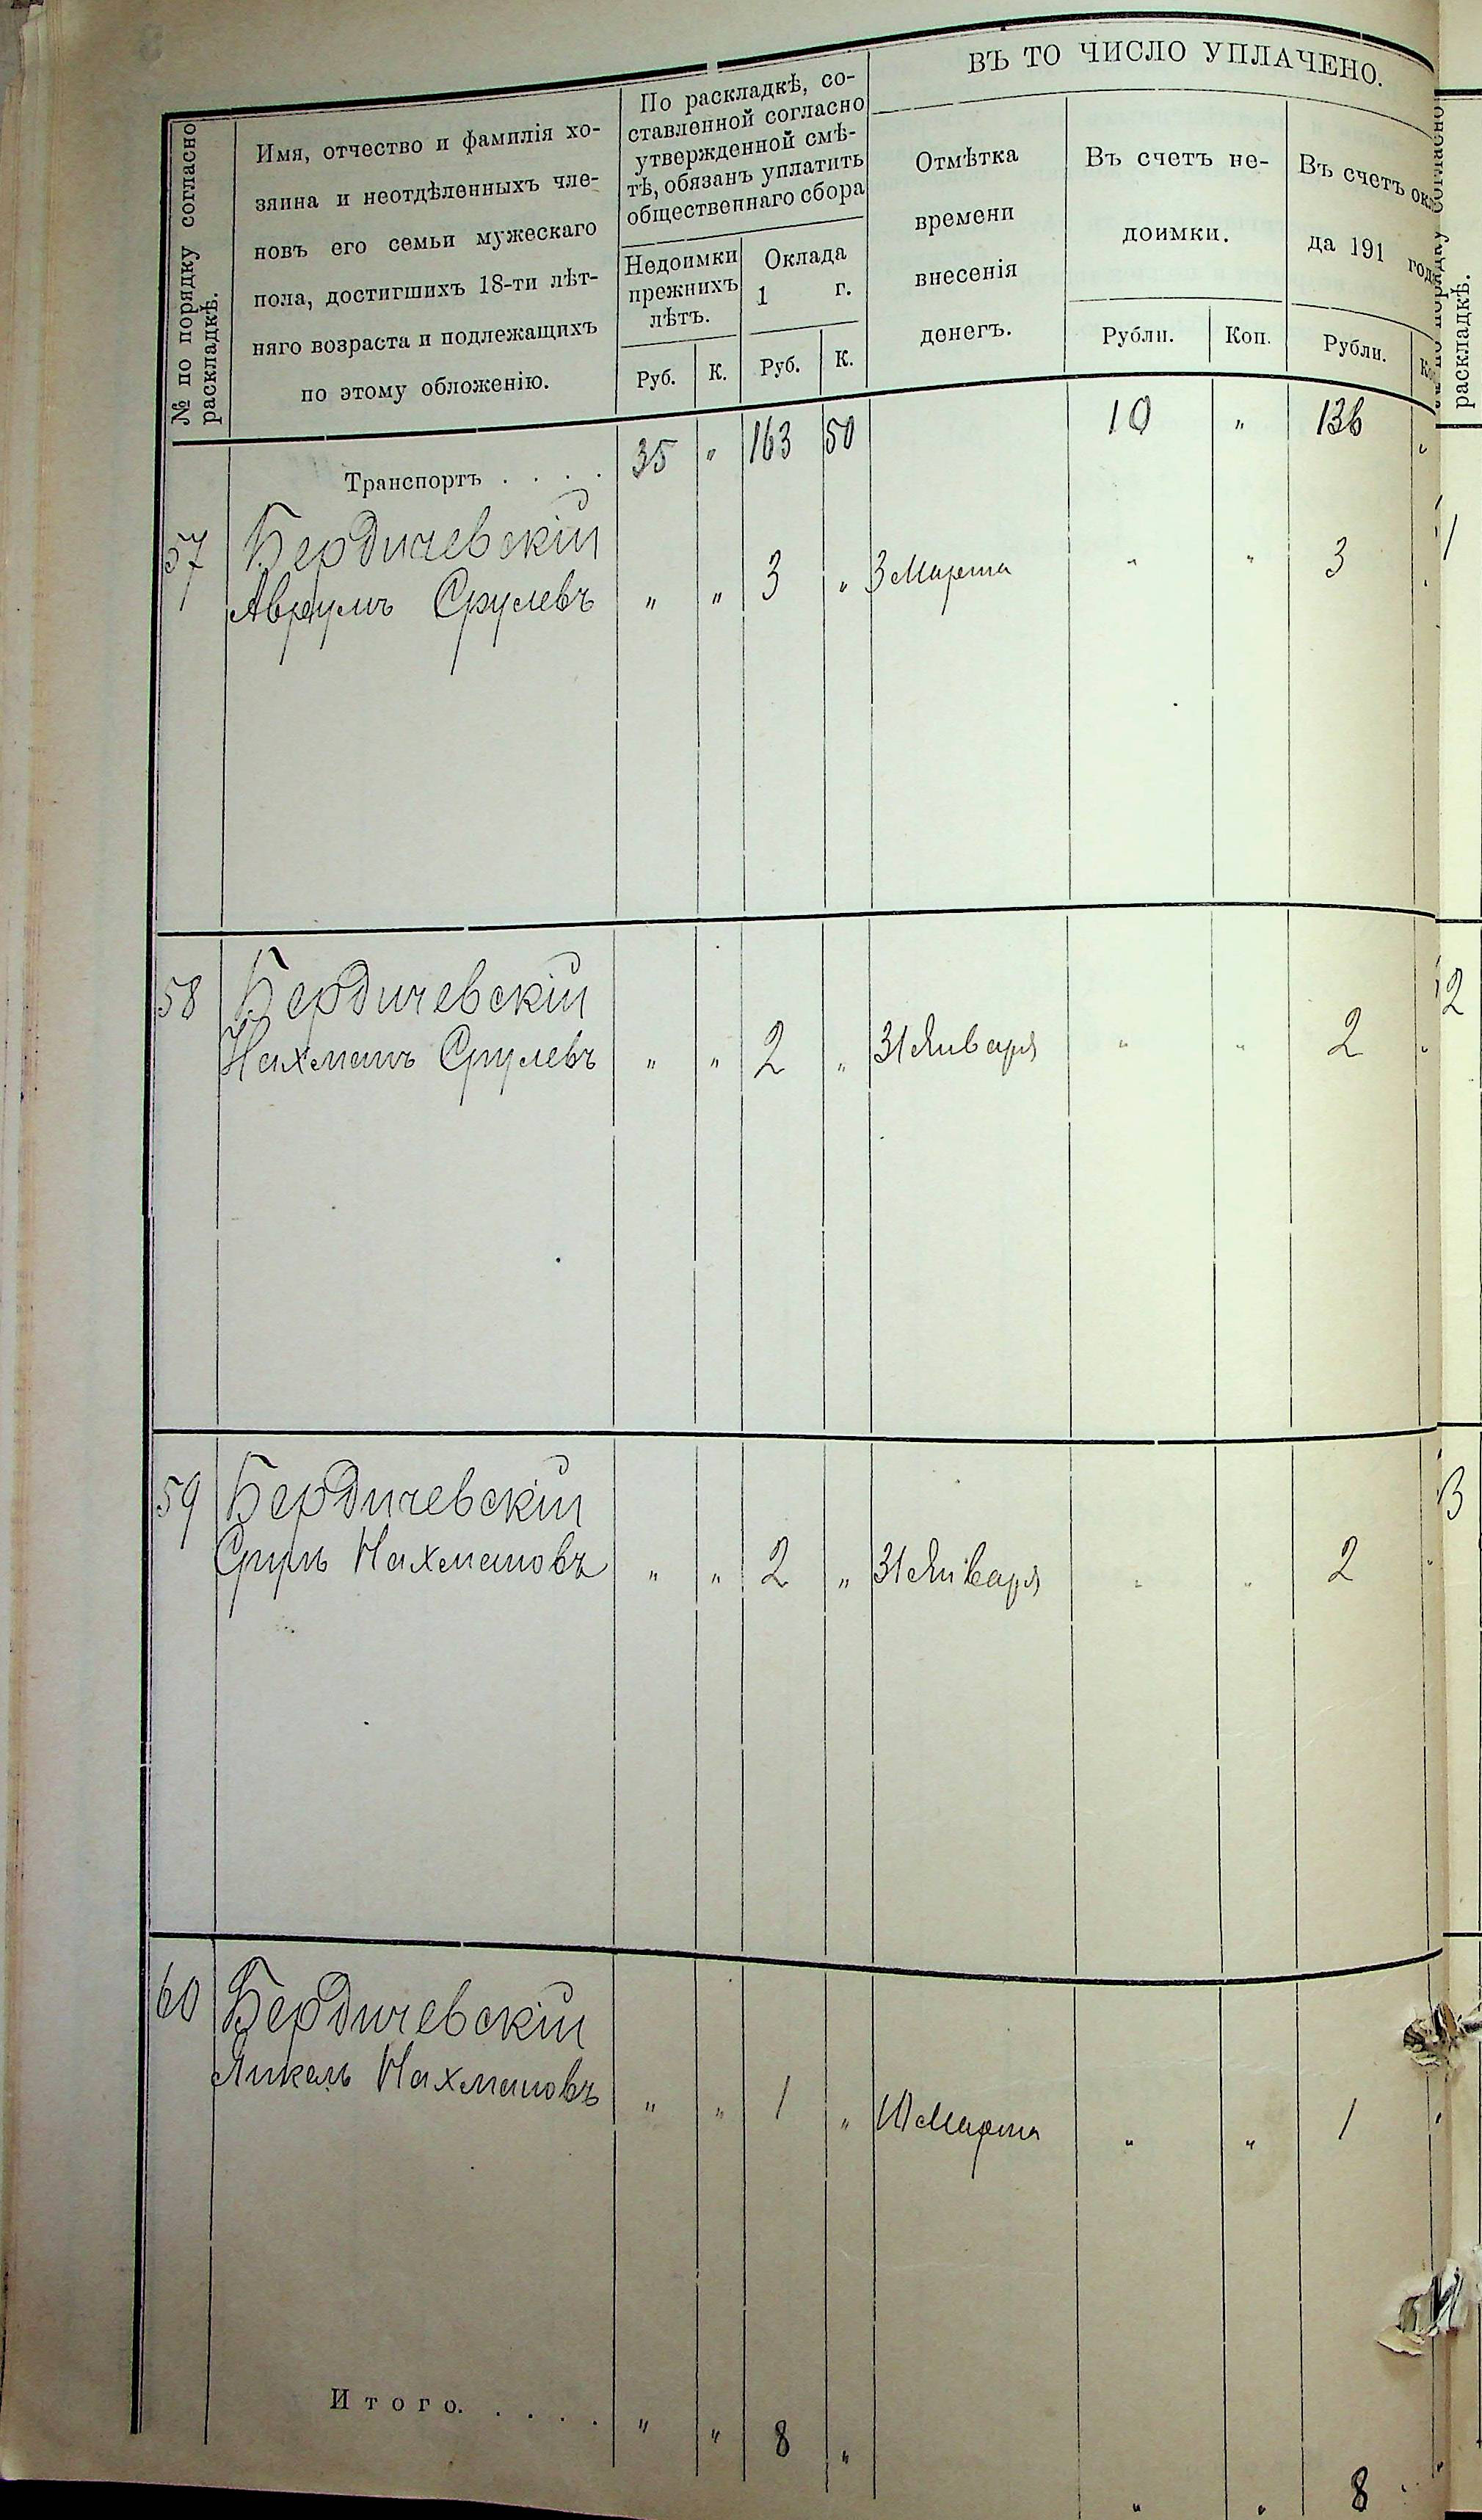 № по порядку согласно
раскладкѣ.
Имя, отчество и фамилія хо-
зяина и неотдѣленныхъ чле-
новъ его семьи мужескаго
пола, достигшихъ 18-ти лѣт-
няго возраста и подлежащихъ
по этому обложенію.
По раскладкѣ, со-
ставленной согласно
утвержденной смѣ-
тѣ, обязанъ уплатить
общественнаго сбора
Недоимки
прежнихъ
лѣтъ.
Руб. К.
Оклада
1 г.
Руб. К.
ВЪ ТО ЧИСЛО УПЛАЧЕНО.
Отмѣтка
времени
внесенія
денегъ.
Въ счетъ не-
доимки.
Рубли. Коп.
Въ счетъ окл
да 191 год
Рубли. Ко
Транспортъ . . . . 35 „ 163 50 10 „ 136 „
57 Бердичевскій
Авраумъ Срулевъ „ „ 3 „ 3 Марта „ „ 3 „
58 Бердичевскій
Нахманъ Срулевъ „ „ 2 „ 31 Января „ „ 2 „
59 Бердичевскій
Сруль Нахмановъ „ „ 2 „ 31 Января „ „ 2 „
60 Бердичевскій
Янкель Нахмановъ „ „ 1 „ 10 Марта „ „ 1 „
Итого. . . . . „ „ 8 „ „ „ 8 „
раскладкѣ.
1
2
3